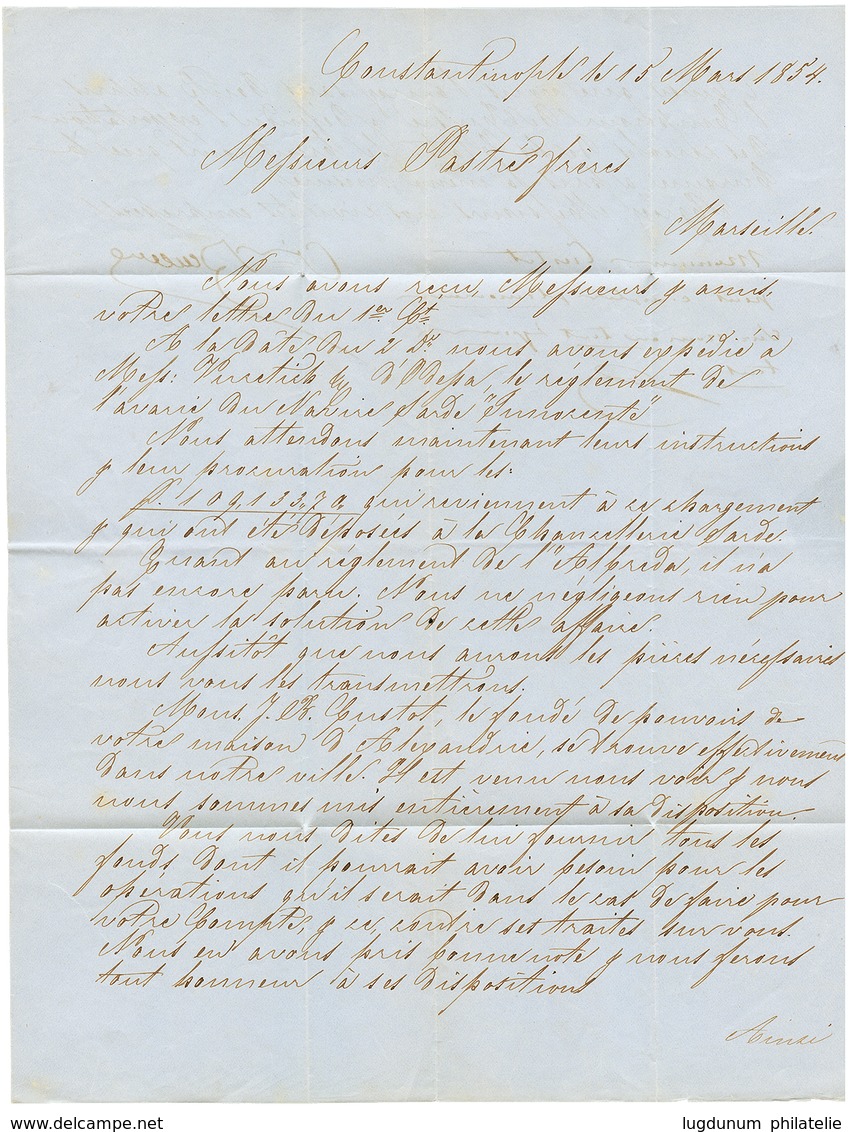 Constantinople le 15 Mars 1854.
Messieurs Pastré frères
Marseille.
Nous avons reçu, Messieurs & amis,
votre lettre du 1er Ct.
A la date du 2 Dt nous avons expédié à
Mess: Vucetich & d'Odessa, le réglement de
l'avarie du Navire Sarde "Innocente"
Nous attendons maintenant leurs instructions
& leur procuration pour les:
qui reviennent à ce chargement
& qui ont été déposés à la Chancellerie Sarde.
Quant au réglement de l'"Alfreda, il n'a
pas encore paru. Nous ne négligeons rien pour
activer la solution de cette affaire.
Aussitôt que nous aurons les pièces nécessaires
nous vous les transmettrons.
Mons. J. B. Custot, le fondé de pouvoirs de
votre maison d'Alexandrie, se trouve effectivement
dans notre ville. Il est venu nous voir & nous
nous sommes mis entièrement à sa disposition.
Vous nous dites de lui fournir tous les
fonds dont il pourrait avoir besoin pour les
operations qu'il serait dans le cas de faire pour
votre Compte, & ce, contre ses traites sur vous.
Nous en avons pris bonne note & nous ferons
tout honneur à ses dispositions
Ainsi
www.delcampe.net
lugdunum philatelie